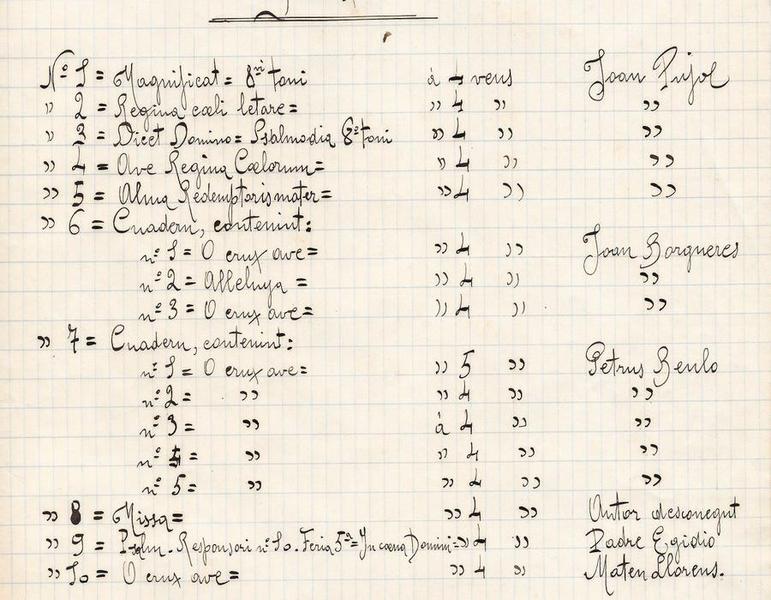 Nº 1 = Magnificat = 8ni toni à 4 veus Joan Pujol
" 2 = Regina cœli letare = " 4 " "
" 3 = Dicet Domino = Psalmodia 8º toni " 4 " "
" 4 = Ave Regina Cœlorum = " 4 " "
" 5 = Alma Redemptoris mater = " 4 " "
" 6 = Cuadern, contenint:
nº 1 = O crux ave = " 4 " Joan Borgueres
nº 2 = Alleluya = " 4 " "
nº 3 = O crux ave = " 4 " "
" 7 = Cuadern, contenint:
nº 1 = O crux ave = " 5 " Petrus Benlo
nº 2 = " " 4 " "
nº 3 = " à 4 " "
nº 4 = " " 4 " "
nº 5 = " " 4 " "
" 8 = Missa = " 4 " Autor desconegut
" 9 = Psalm. Responsori nº 10. Feria 5ª = In cœna Domini = " 4 " Padre Egidio
" 10 = O crux ave = " 4 " Mateu Llorens.